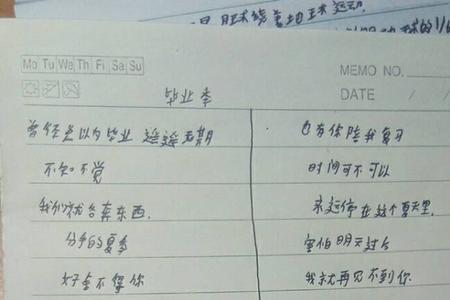 是月球绕着地球运动
的1/6
Mo Tu We Th Fi Sa Su
MEMO NO.
DATE / /
毕业季
曾经是以为毕业 遥遥无期
不知不觉
我们就各奔东西.
分手的夏季
好舍不得你
也有你陪我复习
时间可不可以
永远停在这个夏天里.
害怕明天过后
我就再见不到你.